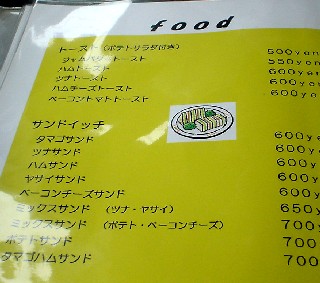 food
トースト(ポテトサラダ付き)
ジャムバタートースト 500yen
ハムトースト 550yen
ツナトースト 600yen
ハムチーズトースト 600yen
ベーコントマトトースト 600yen
サンドイッチ
タマゴサンド 600y
ツナサンド 600y
ハムサンド 600y
ヤサイサンド 600y
ベーコンチーズサンド 600y
ミックスサンド (ツナ・ヤサイ) 650y
ミックスサンド (ポテト・ベーコンチーズ) 700y
ポテトサンド 700
タマゴハムサンド 700